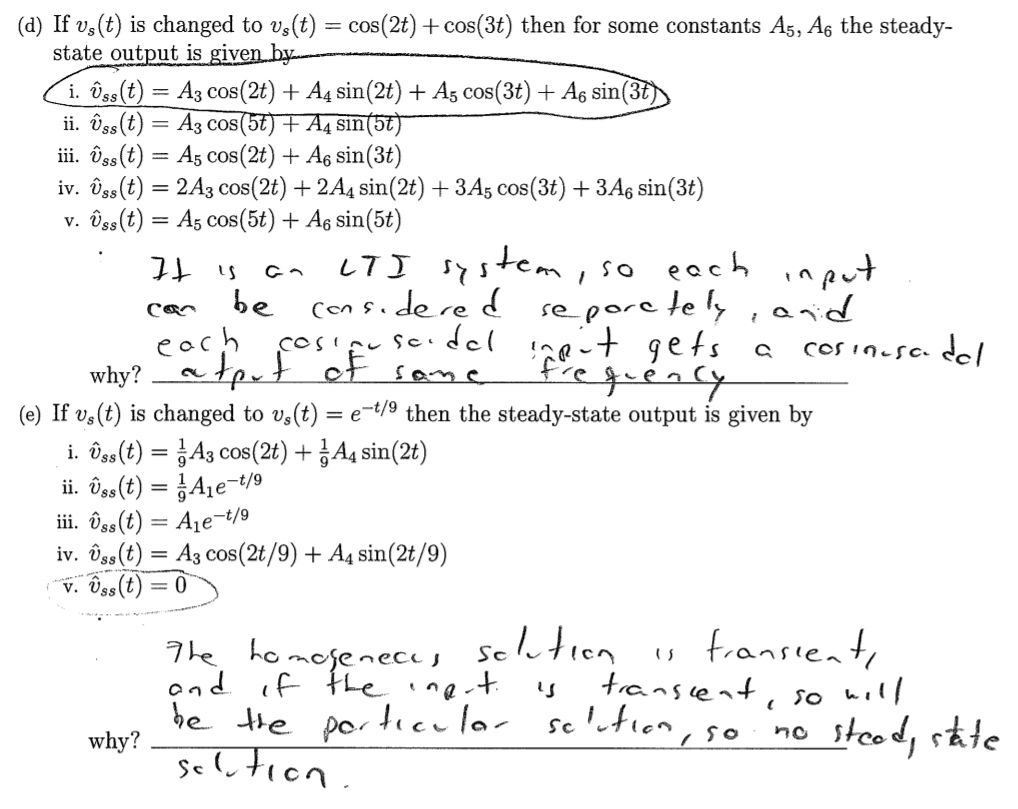 (d) If vₛ(t) is changed to vₛ(t) = cos(2t) + cos(3t) then for some constants A₅, A₆ the steady-
state output is given by
i. v̂ₛₛ(t) = A₃ cos(2t) + A₄ sin(2t) + A₅ cos(3t) + A₆ sin(3t)
ii. v̂ₛₛ(t) = A₃ cos(5t) + A₄ sin(5t)
iii. v̂ₛₛ(t) = A₅ cos(2t) + A₆ sin(3t)
iv. v̂ₛₛ(t) = 2A₃ cos(2t) + 2A₄ sin(2t) + 3A₅ cos(3t) + 3A₆ sin(3t)
v. v̂ₛₛ(t) = A₅ cos(5t) + A₆ sin(5t)
It is an LTI system, so each input
can be considered separately, and
each cosinusoidal input gets a cosinusoidal
why? output of same frequency
(e) If vₛ(t) is changed to vₛ(t) = e^{-t/9} then the steady-state output is given by
i. v̂ₛₛ(t) = 1/9 A₃ cos(2t) + 1/9 A₄ sin(2t)
ii. v̂ₛₛ(t) = 1/9 A₁e^{-t/9}
iii. v̂ₛₛ(t) = A₁e^{-t/9}
iv. v̂ₛₛ(t) = A₃ cos(2t/9) + A₄ sin(2t/9)
v. v̂ₛₛ(t) = 0
The homogeneous solution is transient,
and if the input is transient, so will
be the particular solution, so no steady state
why?
solution.